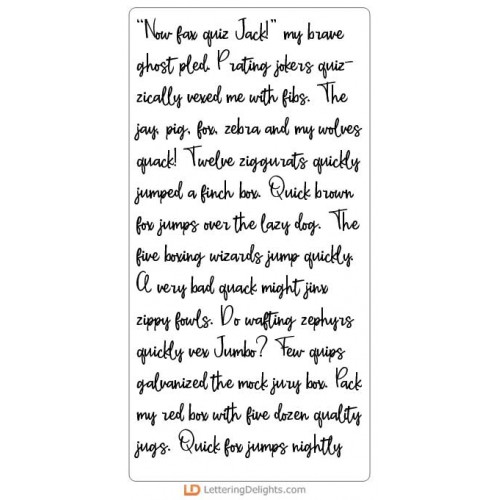 “Now fax quiz Jack!” my brave
ghost pled. Prating jokers quiz-
zically vexed me with fibs. The
jay, pig, fox, zebra and my wolves
quack! Twelve ziggurats quickly
jumped a finch box. Quick brown
fox jumps over the lazy dog. The
five boxing wizards jump quickly.
A very bad quack might jinx
zippy fowls. Do wafting zephyrs
quickly vex Jumbo? Few quips
galvanized the mock jury box. Pack
my red box with five dozen quality
jugs. Quick fox jumps nightly
LD LetteringDelights.com